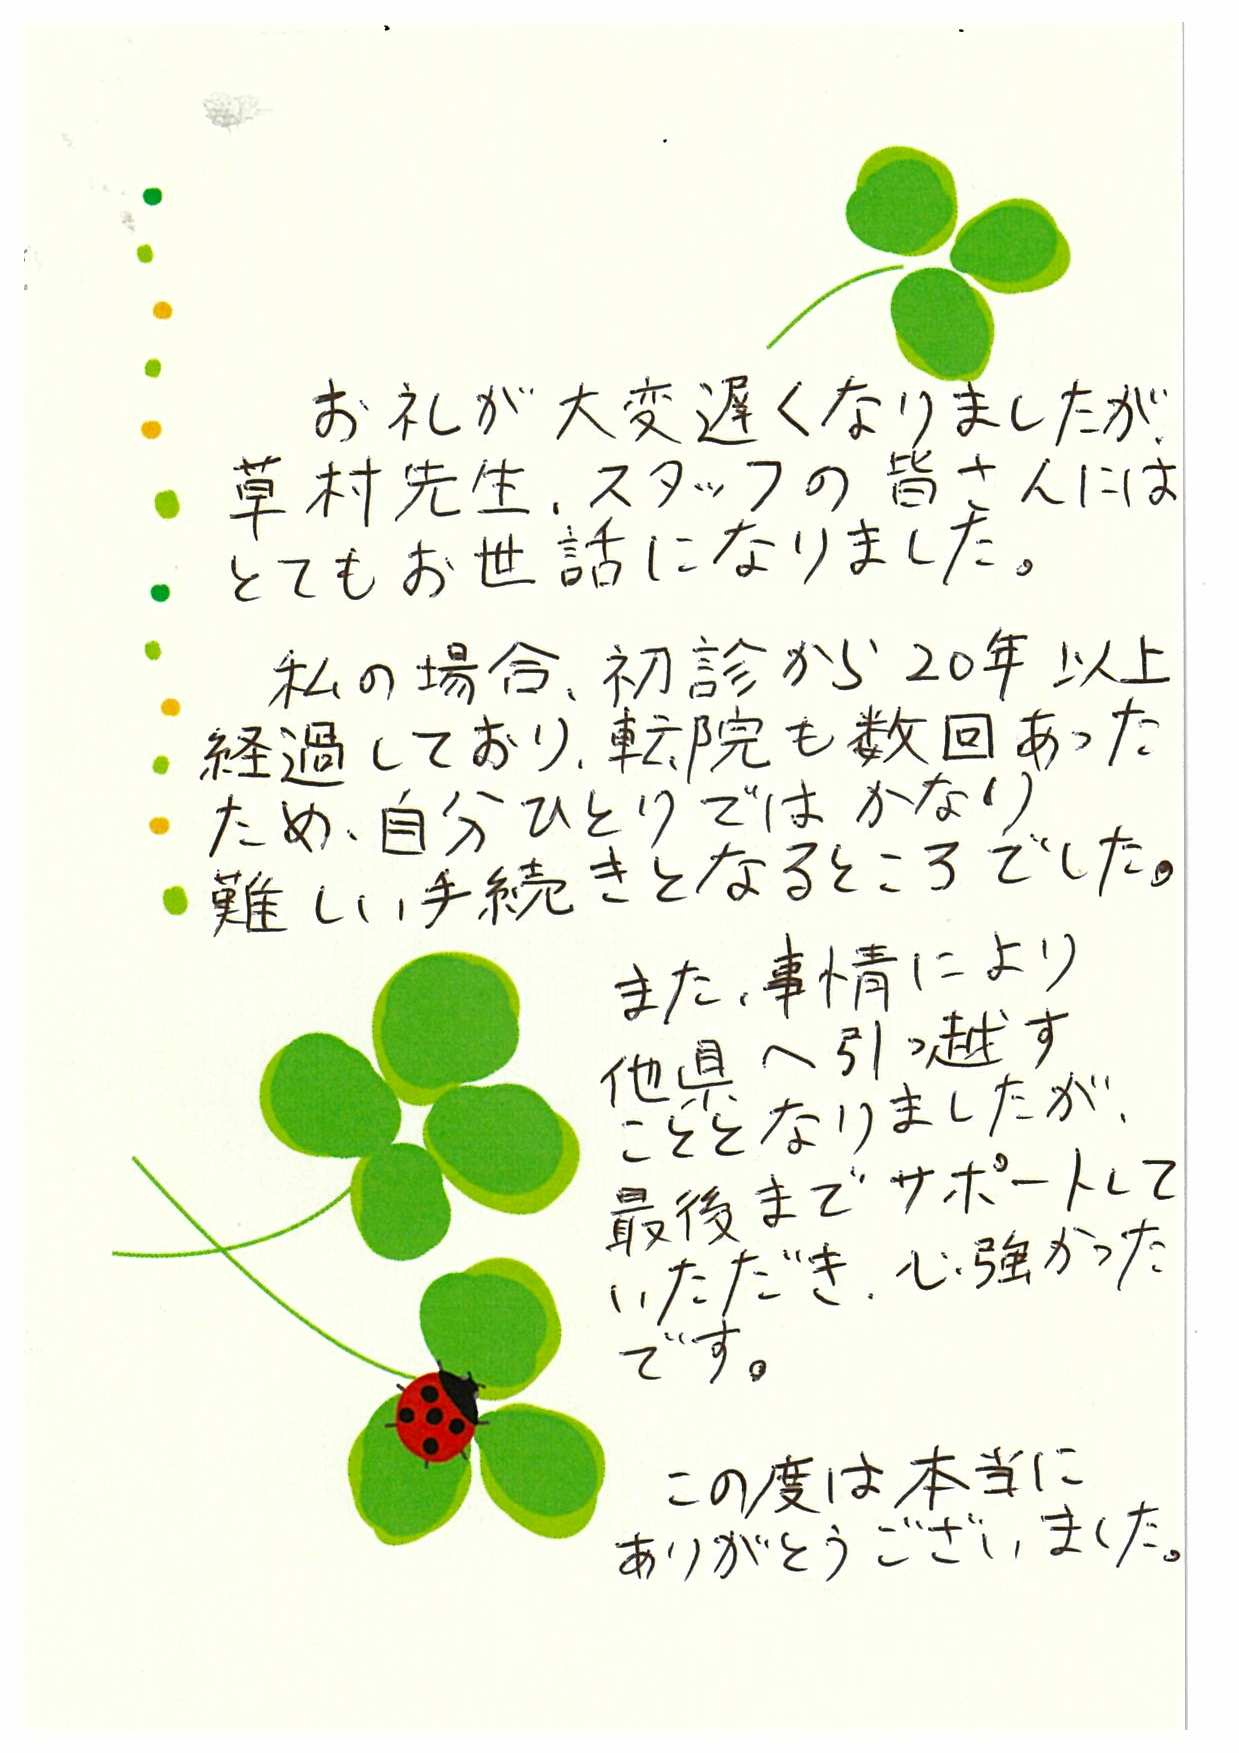 お礼が大変遅くなりましたが、
草村先生、スタッフの皆さんには
とてもお世話になりました。
私の場合、初診から20年以上
経過しており、転院も数回あった
ため、自分ひとりではかなり
難しい手続きとなるところでした。
また、事情により
他県へ引っ越す
こととなりましたが、
最後までサポートして
いただき、心強かった
です。
この度は本当に
ありがとうございました。